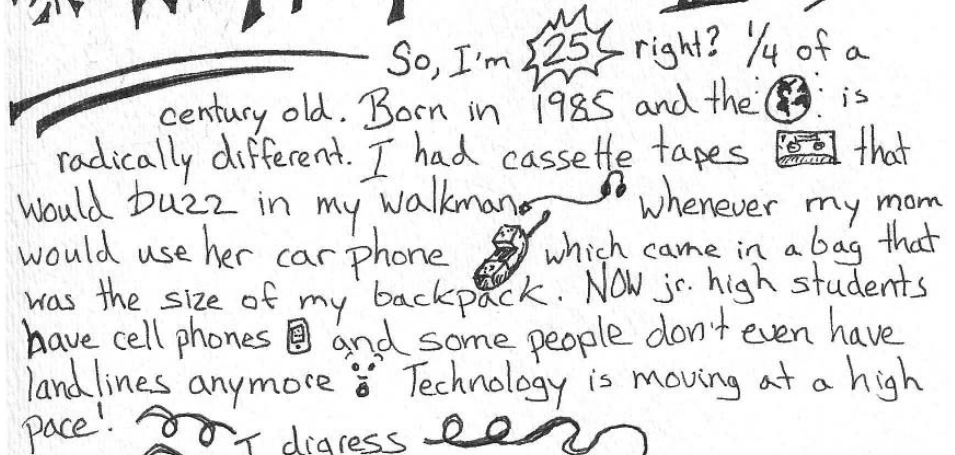 So, I'm 25 right? 1/4 of a
century old. Born in 1985 and the is
radically different. I had cassette tapes that
would buzz in my walkman whenever my mom
would use her car phone which came in a bag that
was the size of my backpack. NOW jr. high students
have cell phones and some people don't even have
landlines anymore Technology is moving at a high
pace!
I digress